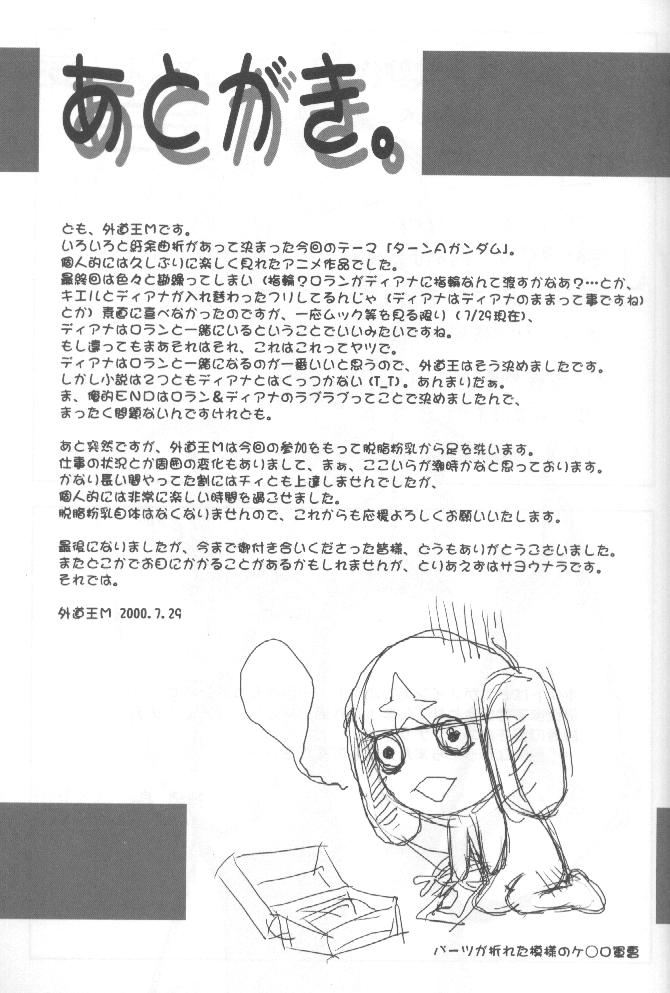 あとがき。
ども、外道王Mです。
いろいろと紆余曲折があって決まった今回のテーマ「ターンAガンダム」。
個人的には久しぶりに楽しく見れたアニメ作品でした。
最終回は色々と勘繰ってしまい（指輪？ロランがディアナに指輪なんて渡すかなあ？…とか、
キエルとディアナが入れ替わったフリしてるんじゃ（ディアナはディアナのままって事ですね）
とか）素直に喜べなかったのですが、一応ムック等を見る限り（7/29現在）、
ディアナはロランと一緒にいるということでいいみたいですね。
もし違ってもまあそれはそれ、これはこれってヤツで。
ディアナはロランと一緒になるのが一番いいと思うので、外道王はそう決めましたです。
しかし小説は2つともディアナとはくっつかない(T_T)。あんまりだぁ。
ま、俺的ENDはロラン＆ディアナのラブラブってことで決めましたんで、
まったく問題ないんですけれども。
あと突然ですが、外道王Mは今回の参加をもって脱脂粉乳から足を洗います。
仕事の状況とか周囲の変化もありまして、まぁ、ここいらが潮時かなと思っております。
かなり長い間やってた割にはチィとも上達しませんでしたが、
個人的には非常に楽しい時間を過ごせました。
脱脂粉乳自体はなくなりませんので、これからも応援よろしくお願いいたします。
最後になりましたが、今まで御付き合いくださった皆様、どうもありがとうございました。
またどこかでお目にかかることがあるかもしれませんが、とりあえずはサヨウナラです。
それでは。
外道王M 2000.7.29
パーツが折れた模様のケ○ロ軍曹